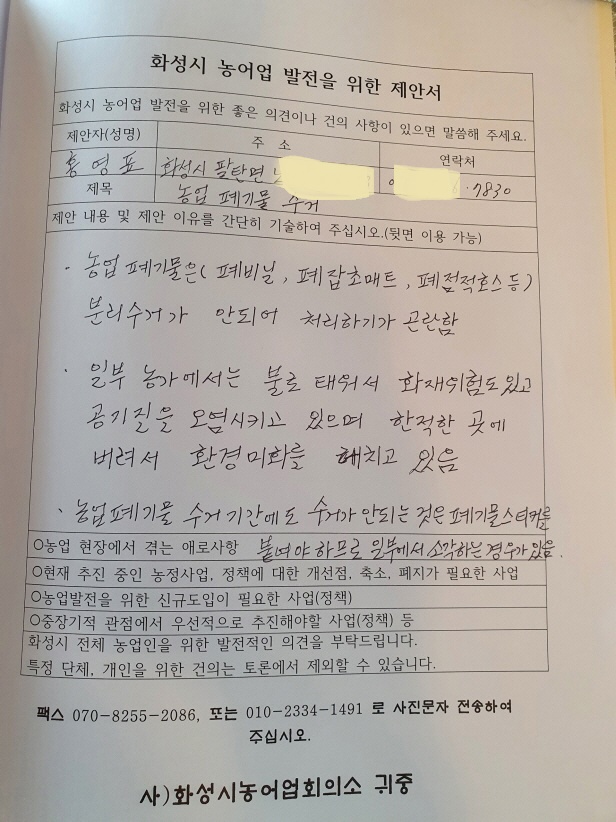 화성시 농어업 발전을 위한 제안서
화성시 농어업 발전을 위한 좋은 의견이나 건의 사항이 있으면 말씀해 주세요.
제안자(성명) 주 소 연락처
홍영표 화성시 팔탄면 0 7830
제목 농업 폐기물 수거
제안 내용 및 제안 이유를 간단히 기술하여 주십시오.(뒷면 이용 가능)
· 농업 폐기물은( 폐비닐, 폐잡초매트, 폐점적호스 등)
분리수거가 안되어 처리하기가 곤란함
· 일부 농가에서는 불로 태워서 화재위험도 있고
공기질을 오염시키고 있으며 한적한 곳에
버려서 환경미화를 해치고 있음
· 농업폐기물 수거 기간에도 수거가 안되는 것은 폐기물스티커를
○농업 현장에서 겪는 애로사항 붙여야 하므로 일부에서 소각하는 경우가 있음.
○현재 추진 중인 농정사업, 정책에 대한 개선점, 축소, 폐지가 필요한 사업
○농업발전을 위한 신규도입이 필요한 사업(정책)
○중장기적 관점에서 우선적으로 추진해야할 사업(정책) 등
화성시 전체 농업인을 위한 발전적인 의견을 부탁드립니다.
특정 단체, 개인을 위한 건의는 토론에서 제외할 수 있습니다.
팩스 070-8255-2086, 또는 010-2334-1491 로 사진문자 전송하여
주십시오.
사)화성시농어업회의소 귀중